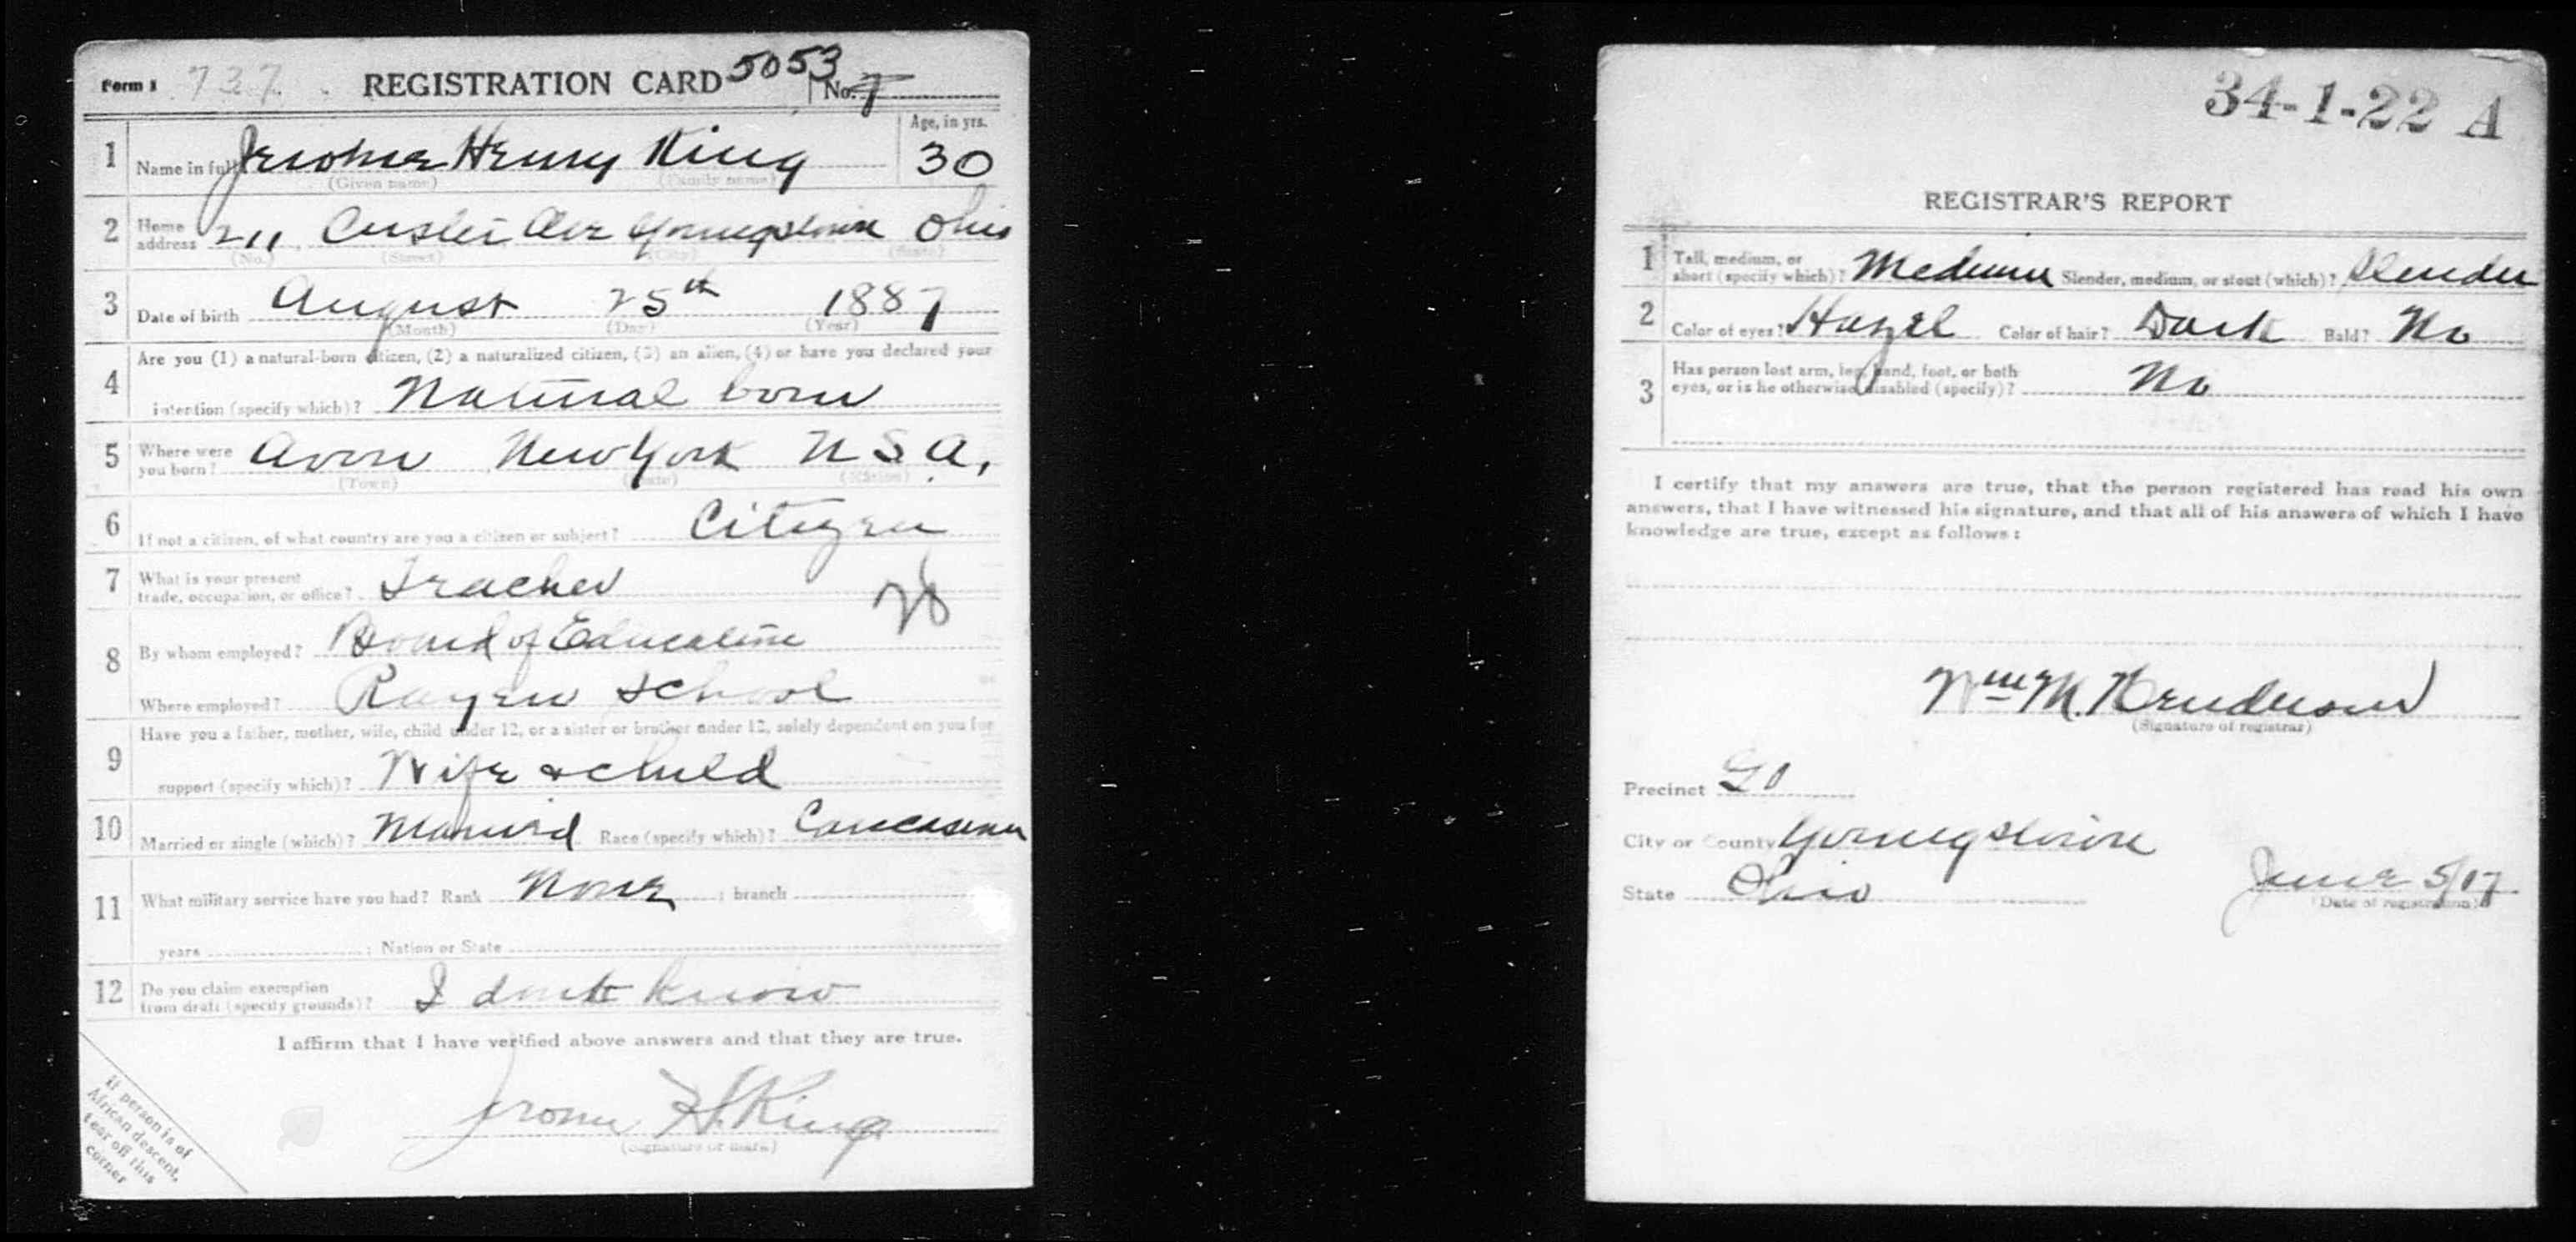 Form 1 737 REGISTRATION CARD 5053 No. 7
1 Name in full Jerome Henry King Age, in yrs. 30
(Given name) (Family name)
2 Home address 211 Ave Youngstown Ohio
(No.) (Street) (City) (State)
3 Date of birth August 25th 1887
(Month) (Day) (Year)
4 Are you (1) a natural-born citizen, (2) a naturalized citizen, (3) an alien, (4) or have you declared your
intention (specify which)? Natural born
5 Where were you born? Avon New York U S A.
(Town) (State) (Nation)
6 If not a citizen, of what country are you a citizen or subject? Citizen
7 What is your present trade, occupation, or office? Teacher
8 By whom employed? Board of Education
Where employed? Rayen School
9 Have you a father, mother, wife, child under 12, or a sister or brother under 12, solely dependent on you for
support (specify which)? Wife & child
10 Married or single (which)? Married Race (specify which)? Caucasian
11 What military service have you had? Rank None ; branch
years ; Nation or State
12 Do you claim exemption from draft (specify grounds)? I don't know
I affirm that I have verified above answers and that they are true.
Jerome H. King
(Signature or mark)
If person is of
African descent,
tear off this
corner
34-1-22 A
REGISTRAR'S REPORT
1 Tall, medium, or short (specify which)? Medium Slender, medium, or stout (which)? Slender
2 Color of eyes? Hazel Color of hair? Dark Bald? No
3 Has person lost arm, leg, hand, foot, or both
eyes, or is he otherwise disabled (specify)? No
I certify that my answers are true, that the person registered has read his own
answers, that I have witnessed his signature, and that all of his answers of which I have
knowledge are true, except as follows:
Wm M. Henderson
(Signature of registrar)
Precinct
City or County Youngstown
State Ohio
June 5/17
(Date of registration)